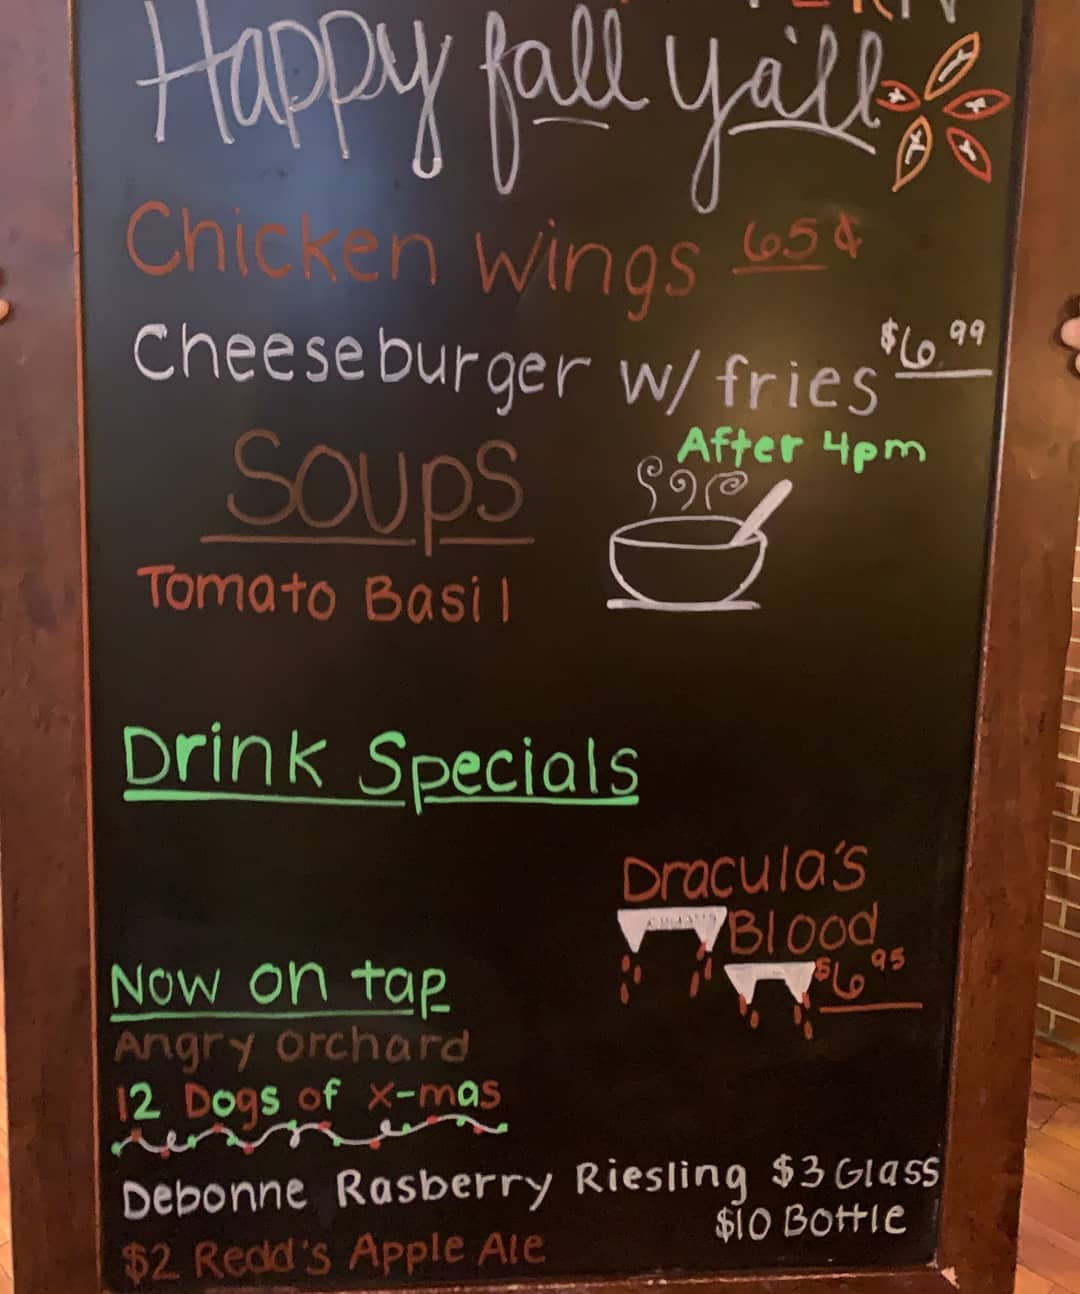 Happy fall ya'll
Chicken wings 65¢
Cheeseburger w/ fries $6.99
After 4pm
Soups
Tomato Basil
Drink Specials
Dracula's
Blood
$6.95
Now on tap
Angry orchard
12 Dogs of x-mas
Debonne Rasberry Riesling $3 Glass
$10 Bottle
$2 Redd's Apple Ale